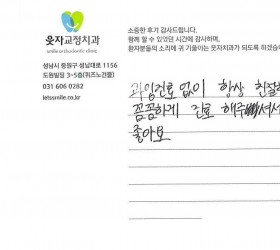 웃자교정치과
성남시 중원구 성남대로 1156
도원빌딩 3~5층(위즈노건플)
031 606 0282
letssmile.co.kr
소중한 후기 감사드립니다.
함께 할 수 있었던 시간에 감사하며,
환자분들의 소리에 귀 기울이는 웃자치과가 되도록 하겠습
과잉진료 없이 항상 친절하
꼼꼼하게 진료 해주셔서
좋아요